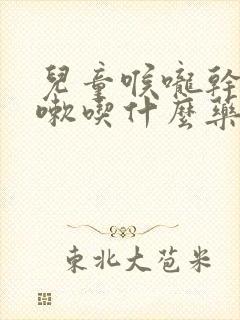 兒童喉嚨幹
嗽喫什麼藥
東北大苞米